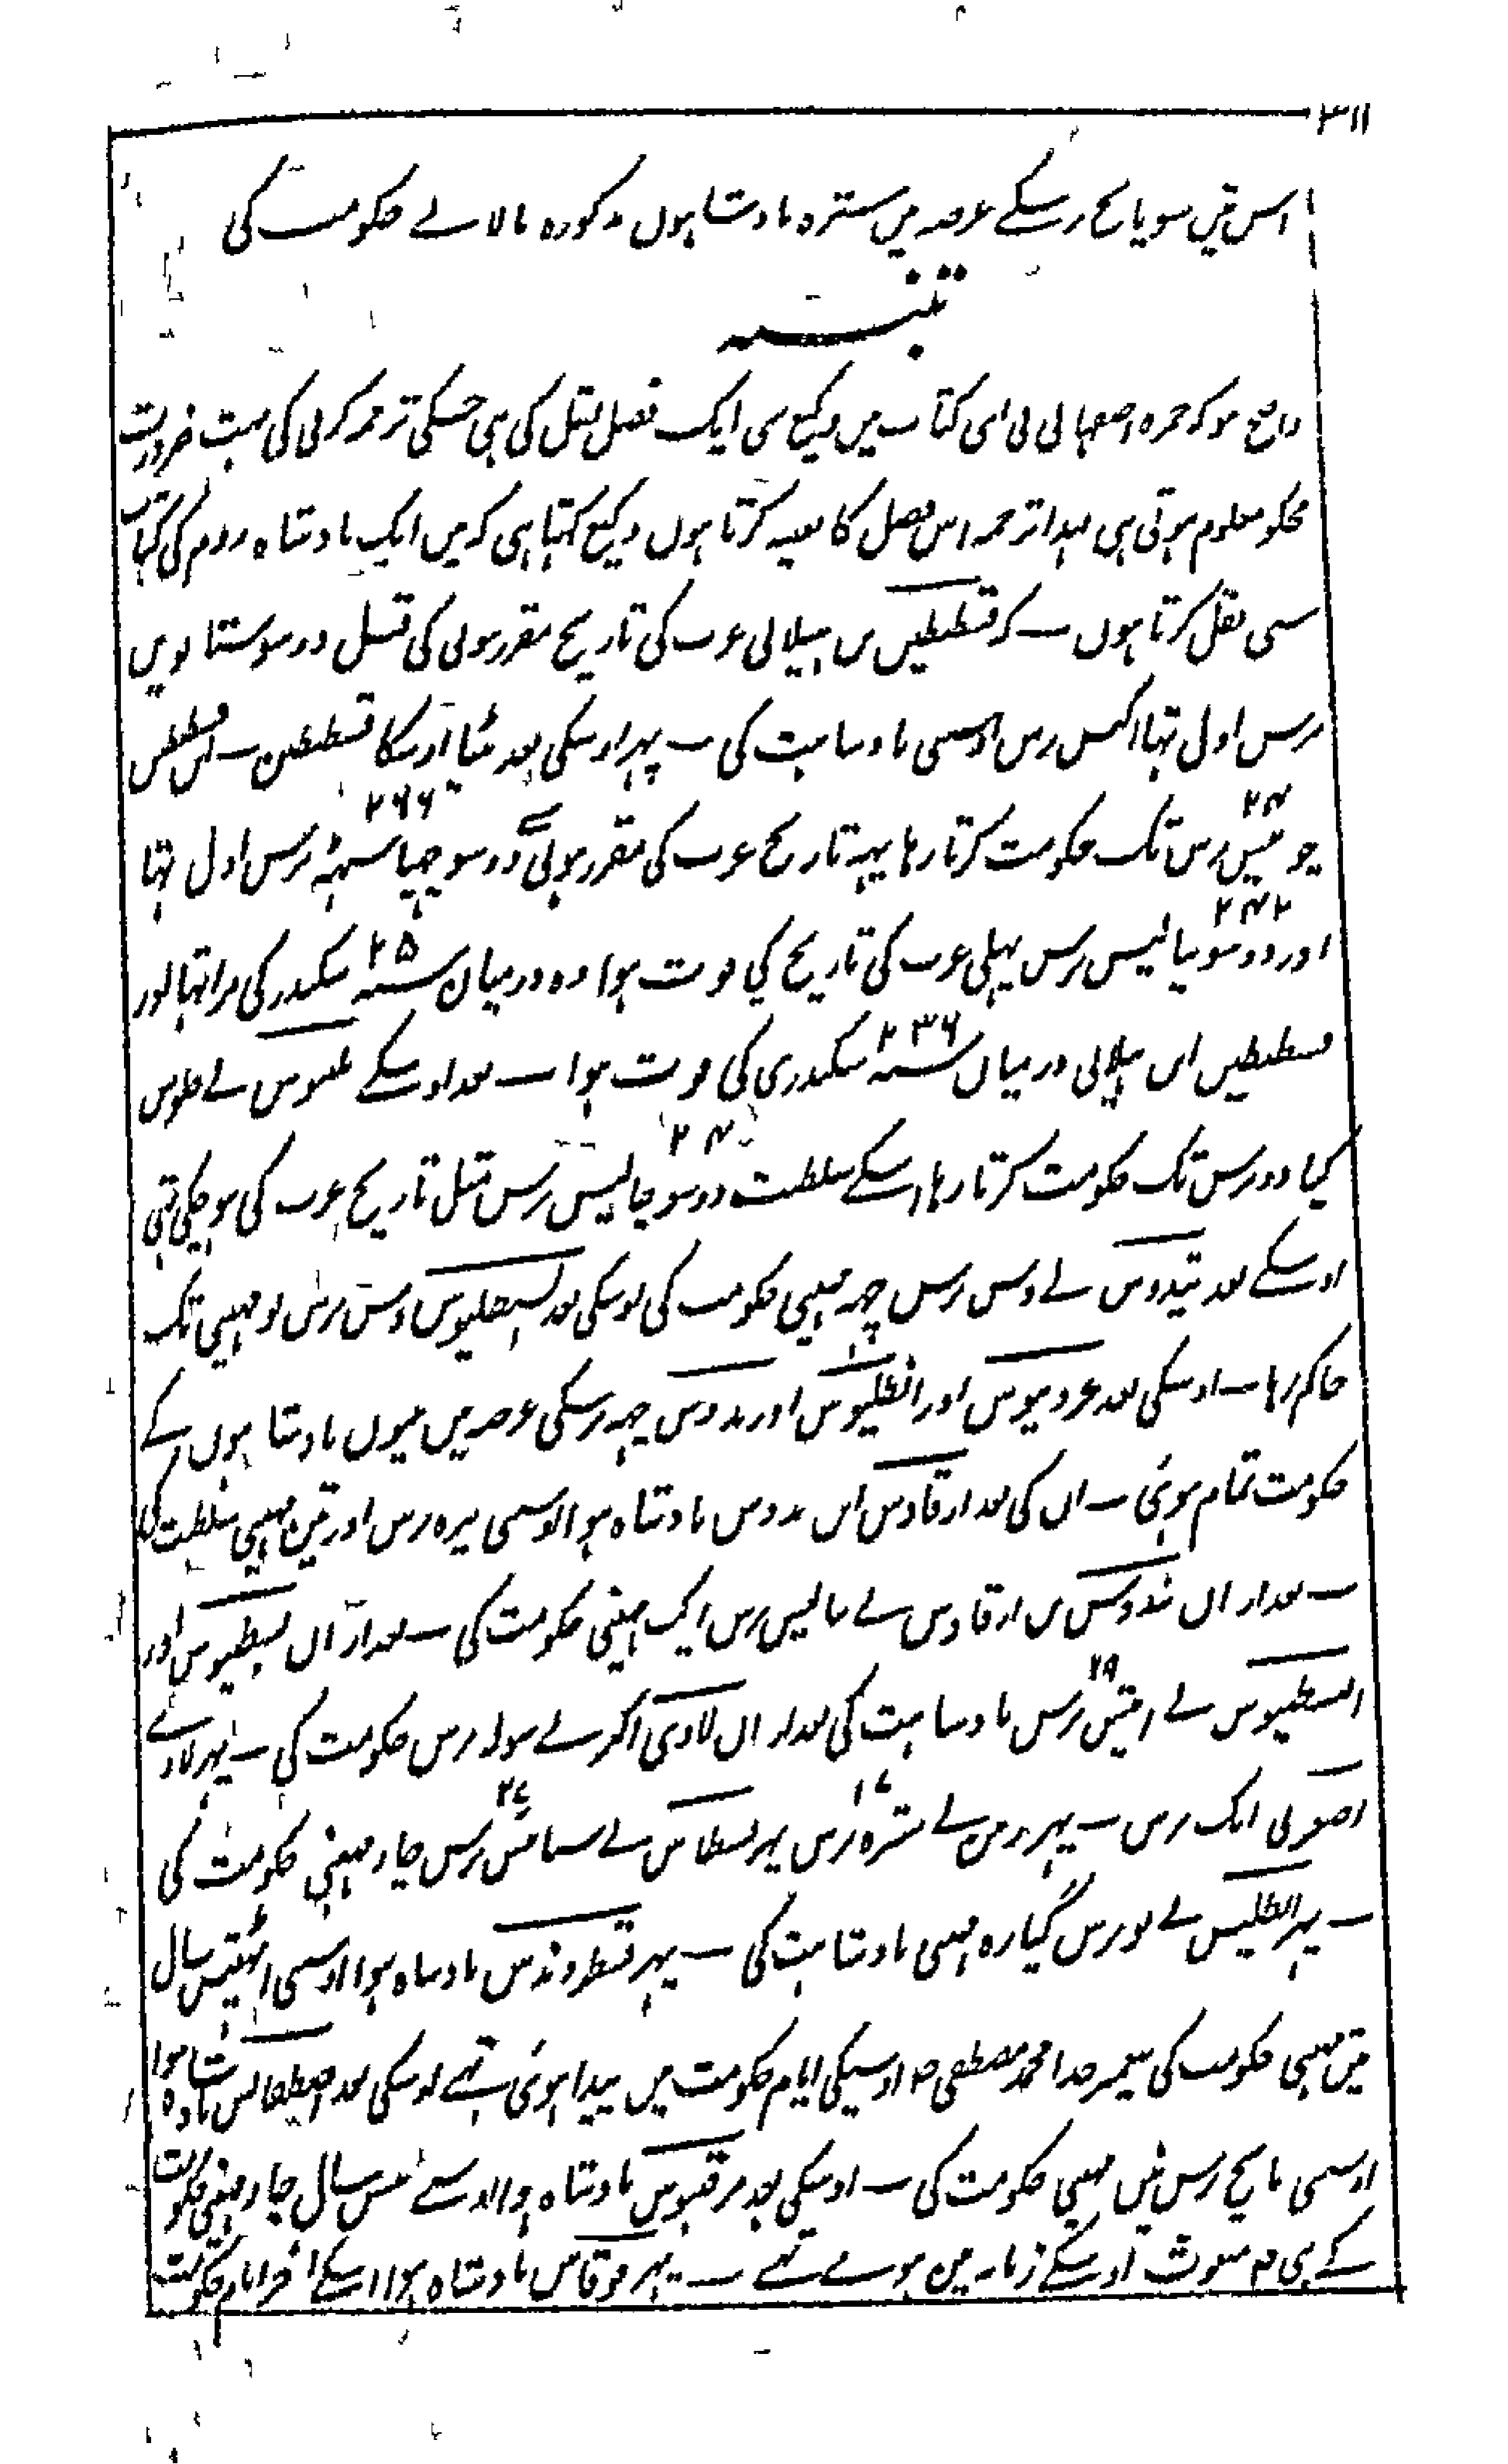 ۳۱۱
اس تین سو پانچ برسکے عرصہ میں سترہ بادشاہوں مذکورہ بالا نے حکومت کی
تنبیہ
واضح ہو کہ حمزہ اصفہانی نی اسی کتاب میں وکیع سی ایک فصل نقل کی ہی جسکی ترجمہ کرنی کی بہت ضرورت
مجکو معلوم ہوتی ہی لہذا ترجمہ اس فصل کا بعینہ کرتا ہوں وکیع کہتا ہی کہ میں ایک بادشاہ روم کی کتاب
سی نقل کرتا ہوں ـ کہ قسطنطین بن ہیلانی عرب کی تاریخ مقرر ہونی کی قبل دو سو ستانویں
برس اول تہا اکتیس برس اوسنی بادشاہت کی ـ پہر اوسکی بعد بیٹا اوسکا قسطنطین ـ ابن قسطنطین
چوبیس ۲۴ برس تک حکومت کرتا رہا یہہ تاریخ عرب کی مقرر ہونی سے دو سو چہیاسٹہہ ۲۶۶ برس اول تہا
اور دو سو بیالیس ۲۴۲ برس پہلی عرب کی تاریخ کی فوت ہوا وہ درمیان سنہ ۲۵ سکندر کی مرا تہا اور
قسطنطین ابن ہیلانی درمیان سنہ ۲۳۶ سکندری کی فوت ہوا ـ بعد اوسکے نے جلوس
کیا دو برس تک حکومت کرتا رہا اسکے سلطنت دو سو چالیس ۲۴۰ برس قبل تاریخ عرب کی ہو چکی تہی
اوسکے بعد تیدوس نے دس برس چہہ مہینی حکومت کی اوسکی بعد دس برس نو مہینی تک
حاکم رہا ـ اوسکی بعد عردمیوس اور انطلیوس اور بدوس چہہ برسکی عرصہ میں تینوں بادشاہوں کے
حکومت تمام ہوئی ـ ان کی بعد ارقادس ابن بدوس بادشاہ ہوا اوسنی تیرہ برس اور تین مہینی سلطنت کی
ـ بعد ازاں تندوس بن ارقادس نے بیالیس برس ایک مہینی حکومت کی ـ بعد ازاں بسطیوس اور
السطیوس نے انتیس ۲۹ برس بادشاہت کی بعد ازاں لاوی اکبر نے سولہ برس حکومت کی ـ پہر لاوے
اصغر نی ایک برس ـ پہر نے سترہ ۱۷ برس پہر نسطاس نے ستائیس ۲۷ برس چار مہینی حکومت کی
ـ پہر الطلیس نے نو برس گیارہ مہینی بادشاہت کی ـ پہر قسطروندس بادشاہ ہوا اوسنی اٹہتیس سال
تین مہینی حکومت کی پیغمبر خدا محمد مصطفی صہ اوسیکی ایام حکومت میں پیدا ہوئی تہے اوسکی بعد اصطفانس بادشاہ ہوا
اوسنی پانچ برس تین مہینی حکومت کی ـ اوسکی بعد مرقیوس بادشاہ ہوا اوسنے بیس سال چار مہینی حکومت
کے نبی صہ مبعوث اوسکے زمانہ میں ہوے تہے ـ پہر فوقاس بادشاہ ہوا اسکے آخر ایام حکومت